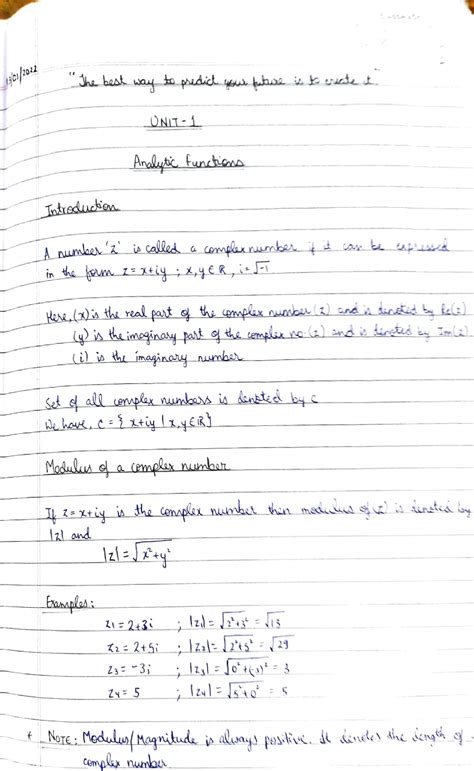 13/01/2022
"The best way to predict your future is to create it."
UNIT-1
Analytic Functions
Introduction
A number 'Z' is called a complex number if it can be expressed
in the form z = x+iy ; x, y ∈ R, i = √-1
Here, (x) is the real part of the complex number (z) and is denoted by Re(z)
(y) is the imaginary part of the complex no (z) and is denoted by Im(z)
(i) is the imaginary number
Set of all complex numbers is denoted by C
We have, C = { x+iy | x, y ∈ R}
Modulus of a complex number
If z = x+iy is the complex number then modulus of (z) is denoted by
|z| and
|z| = √x²+y²
Examples:
z1 = 2+3i ; |z1| = √2²+3² = √13
z2 = 2+5i ; |z2| = √2²+5² = √29
z3 = -3i ; |z3| = √0²+(-3)² = 3
z4 = 5 ; |z4| = √5²+0² = 5
* NOTE: Modulus/Magnitude is always positive. It denotes the length of
complex number